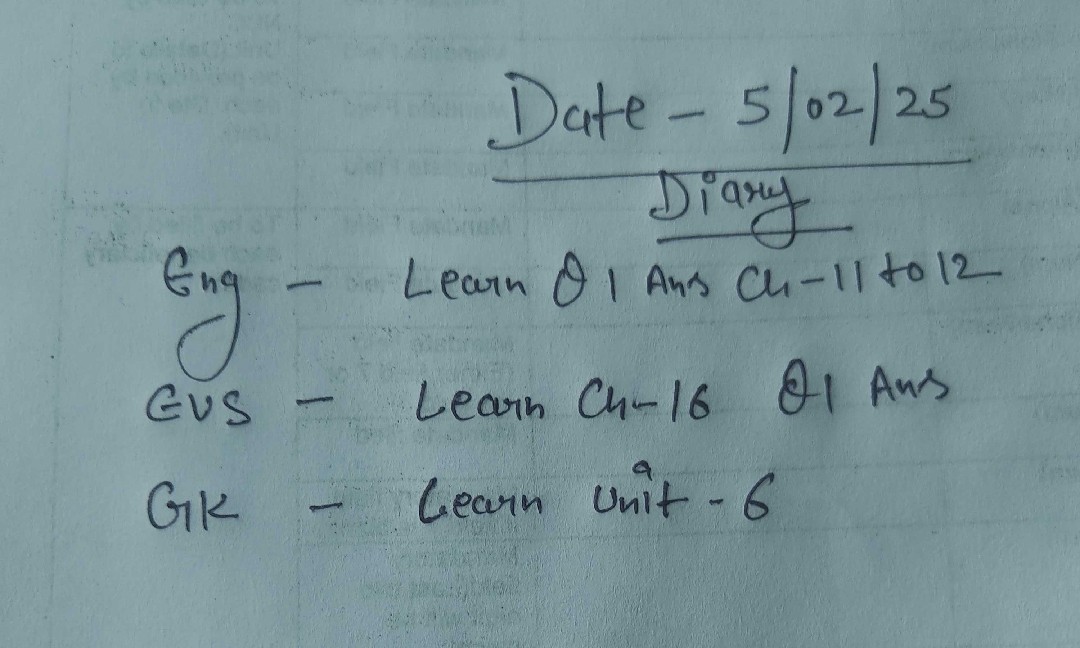 Date - 5/02/25
Diary
Eng - Learn Q1 Ans Ch-11 to 12
EVS - Learn Ch-16 Q1 Ans
GK - Learn Unit - 6